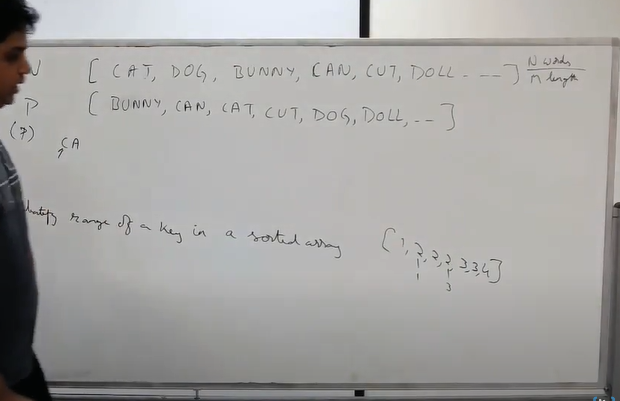 N [ CAT, DOG, BUNNY, CAN, CUT, DOLL - - - - ] N words
M length
P [ BUNNY, CAN, CAT, CUT, DOG, DOLL, -- ]
(P) CA
range of a key in a sorted array [ 1, 2, 2, 2, 3, 3, 4 ]
1 3